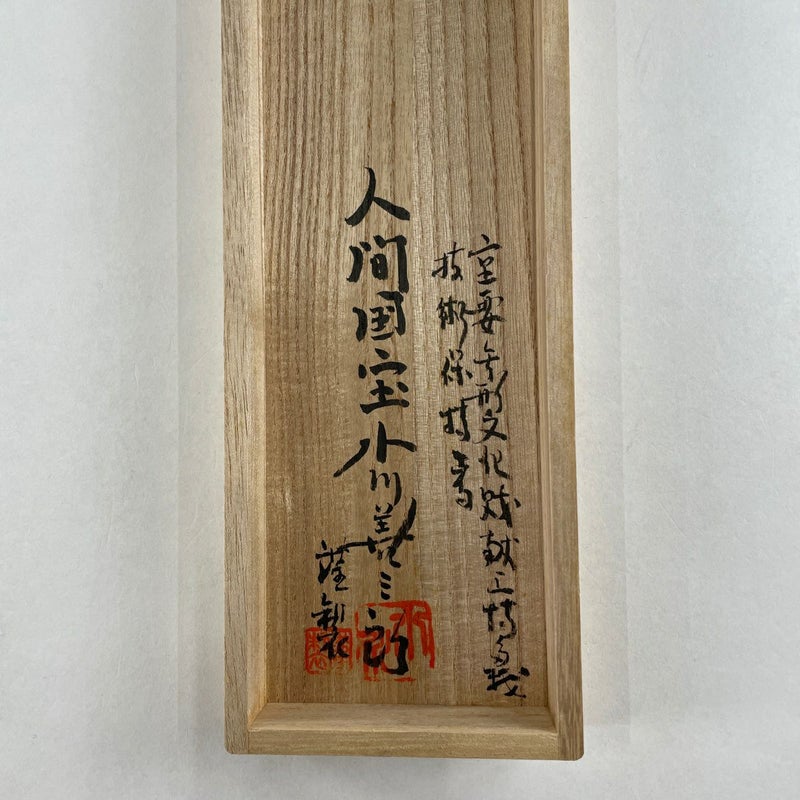 重要無形文化財献上博多織
技術保持者
人間国宝小川善三郎
謹製